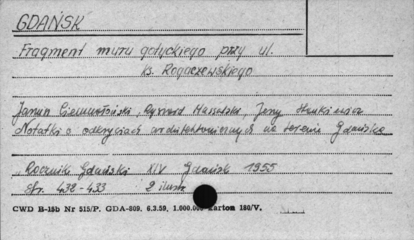 GDAŃSK
Fragment muru gotyckiego przy ul.
ks. Rogaczewskiego
Janusz Ciemnołoński, Ryszard Massalski, Jerzy Stankiewicz
Notatki o odkryciach architektonicznych na terenie Gdańska
"Roczniki Gdański XIV Gdańsk 1955
str. 432-433 2 ilustr.
CWD B-15b Nr 515/P. GDA-809. 6.3.59, 1.000.000 karton 180/V.